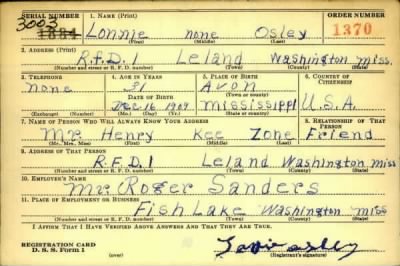 SERIAL NUMBER 1. NAME (Print) ORDER NUMBER
3003
1884 Lonnie none Osley 1370
(First) (Middle) (Last)
2. ADDRESS (Print)
R.F.D. 1 Leland Washington miss.
(Number and street or R. F. D. number) (Town) (County) (State)
3. TELEPHONE 4. AGE IN YEARS 5. PLACE OF BIRTH 6. COUNTRY OF CITIZENSHIP
none 31 Avon
DATE OF BIRTH (Town or county)
Dec. 16 1909 Mississippi U.S.A.
(Exchange) (Number) (Mo.) (Day) (Yr.) (State or country)
7. NAME OF PERSON WHO WILL ALWAYS KNOW YOUR ADDRESS 8. RELATIONSHIP OF THAT PERSON
Mr. Henry Kee Zone Friend
(Mr., Mrs., Miss) (First) (Middle) (Last)
9. ADDRESS OF THAT PERSON
R.F.D. 1 Leland Washington miss
(Number and street or R. F. D. number) (Town) (County) (State)
10. EMPLOYER'S NAME
Mr. Roger Sanders
11. PLACE OF EMPLOYMENT OR BUSINESS
Fish Lake Washington miss
(Number and street or R. F. D. number) (Town) (County) (State)
I AFFIRM THAT I HAVE VERIFIED ABOVE ANSWERS AND THAT THEY ARE TRUE.
REGISTRATION CARD
D. S. S. Form 1 (over) (Registrant's signature)